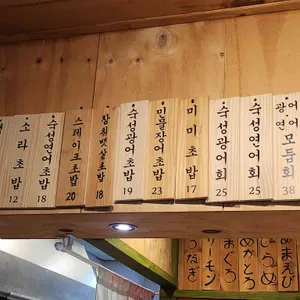 소라초밥
12
숙성연어초밥
18
스테이크초밥
20
참치뱃살초밥
18
숙성광어초밥
19
민물장어초밥
23
미미초밥
17
숙성광어회
25
숙성연어회
25
광어·연어
모듬회
38
うなぎ
サーモン
まぐろ
めかとろ